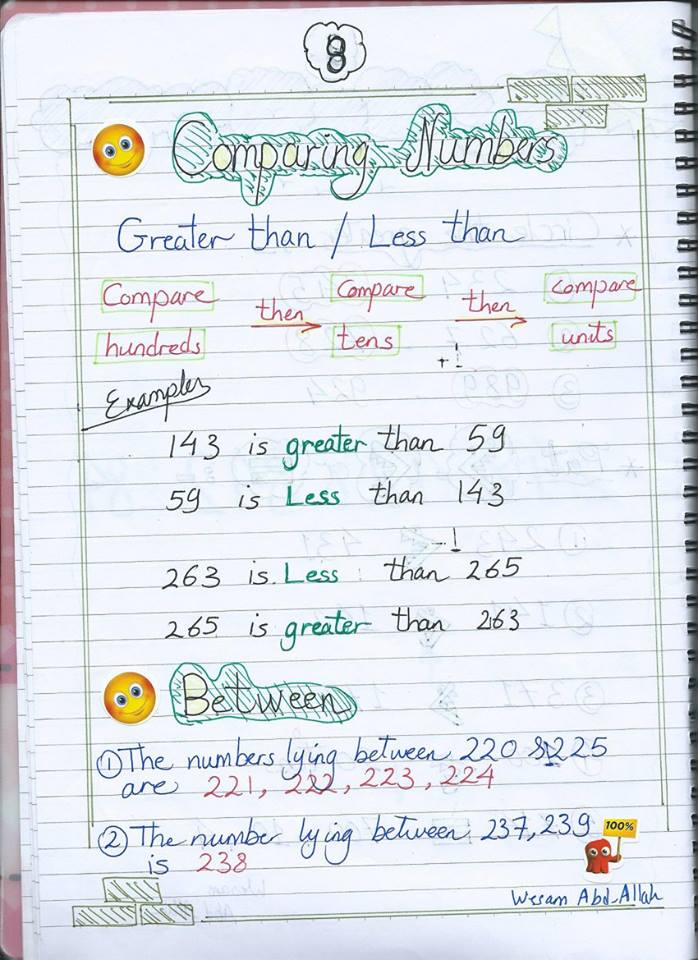 8
Comparing Numbers
Greater than / Less than
Compare then Compare then Compare
hundreds tens units
+1
Examples
143 is greater than 59
59 is Less than 143
-1
263 is Less than 265
265 is greater than 263
Between
① The numbers lying between 220 & 225
are 221, 222, 223, 224
② The number lying between 237, 239
is 238
100%
Wesam Abd-Allah